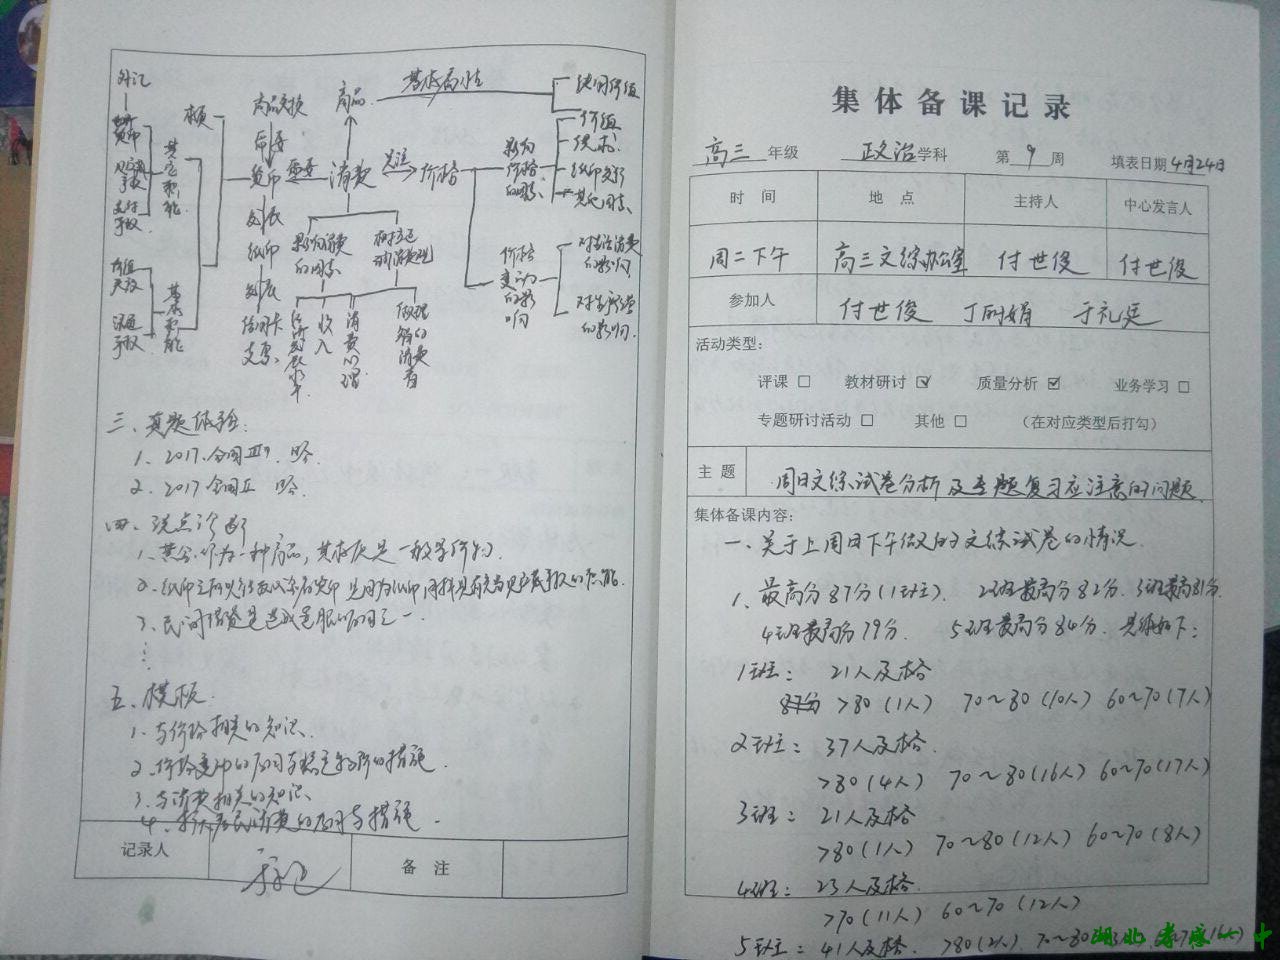 外汇
世界货币
贮藏手段
支付手段
其它职能
价值尺度
流通手段
基本职能
商品交换
需要
货币
发展
纸币
发展
信用卡
支票
商品
基本属性
使用价值
价值
消费
关注
价格
影响价格的因素
价值
供求
纸币发行
其他因素
价格变动的影响
对生活消费的影响
对生产经营的影响
影响消费的因素
树立正确的消费观
经济发展水平
收入
消费心理
做理智的消费者
三、真题体验:
1、2017.全国III
2、2017全国II
四、
1、黄金作为一种商品,其本质是一般等价物.
3、民间借贷是造成
五、模板.
1、与价格相关的知识.
2、价格变动的原因与稳定物价的措施.
3、与消费相关的知识
4、扩大居民消费的原因与措施.
记录人
备 注
集体备课记录
高三 年级 政治 学科 第 9 周 填表日期 4月24日
时 间 地 点 主持人 中心发言人
周二下午 高三文综办公室 付世俊 付世俊
参加人 付世俊 丁丽娟 于礼廷
活动类型:
评课 □ 教材研讨 ☑ 质量分析 ☑ 业务学习 □
专题研讨活动 □ 其他 □ (在对应类型后打勾)
主 题 周日文综试卷分析及专题复习应注意的问题.
集体备课内容:
一、关于上周日下午做的文综试卷的情况.
1、最高分87分(1班). 2班最高分82分. 3班最高81分.
4班最高分79分. 5班最高分84分. 具体如下:
1班: 21人及格
87分 >80(1人) 70~80(10人) 60~70(7人)
2班: 37人及格.
>80(4人) 70~80(16人) 60~70(17人)
3班: 21人及格
>80(1人) 70~80(12人) 60~70(8人)
4班: 23人及格.
>70(11人) 60~70(12人)
5班: 41人及格. >80(2人) 70~80
湖北孝感一十